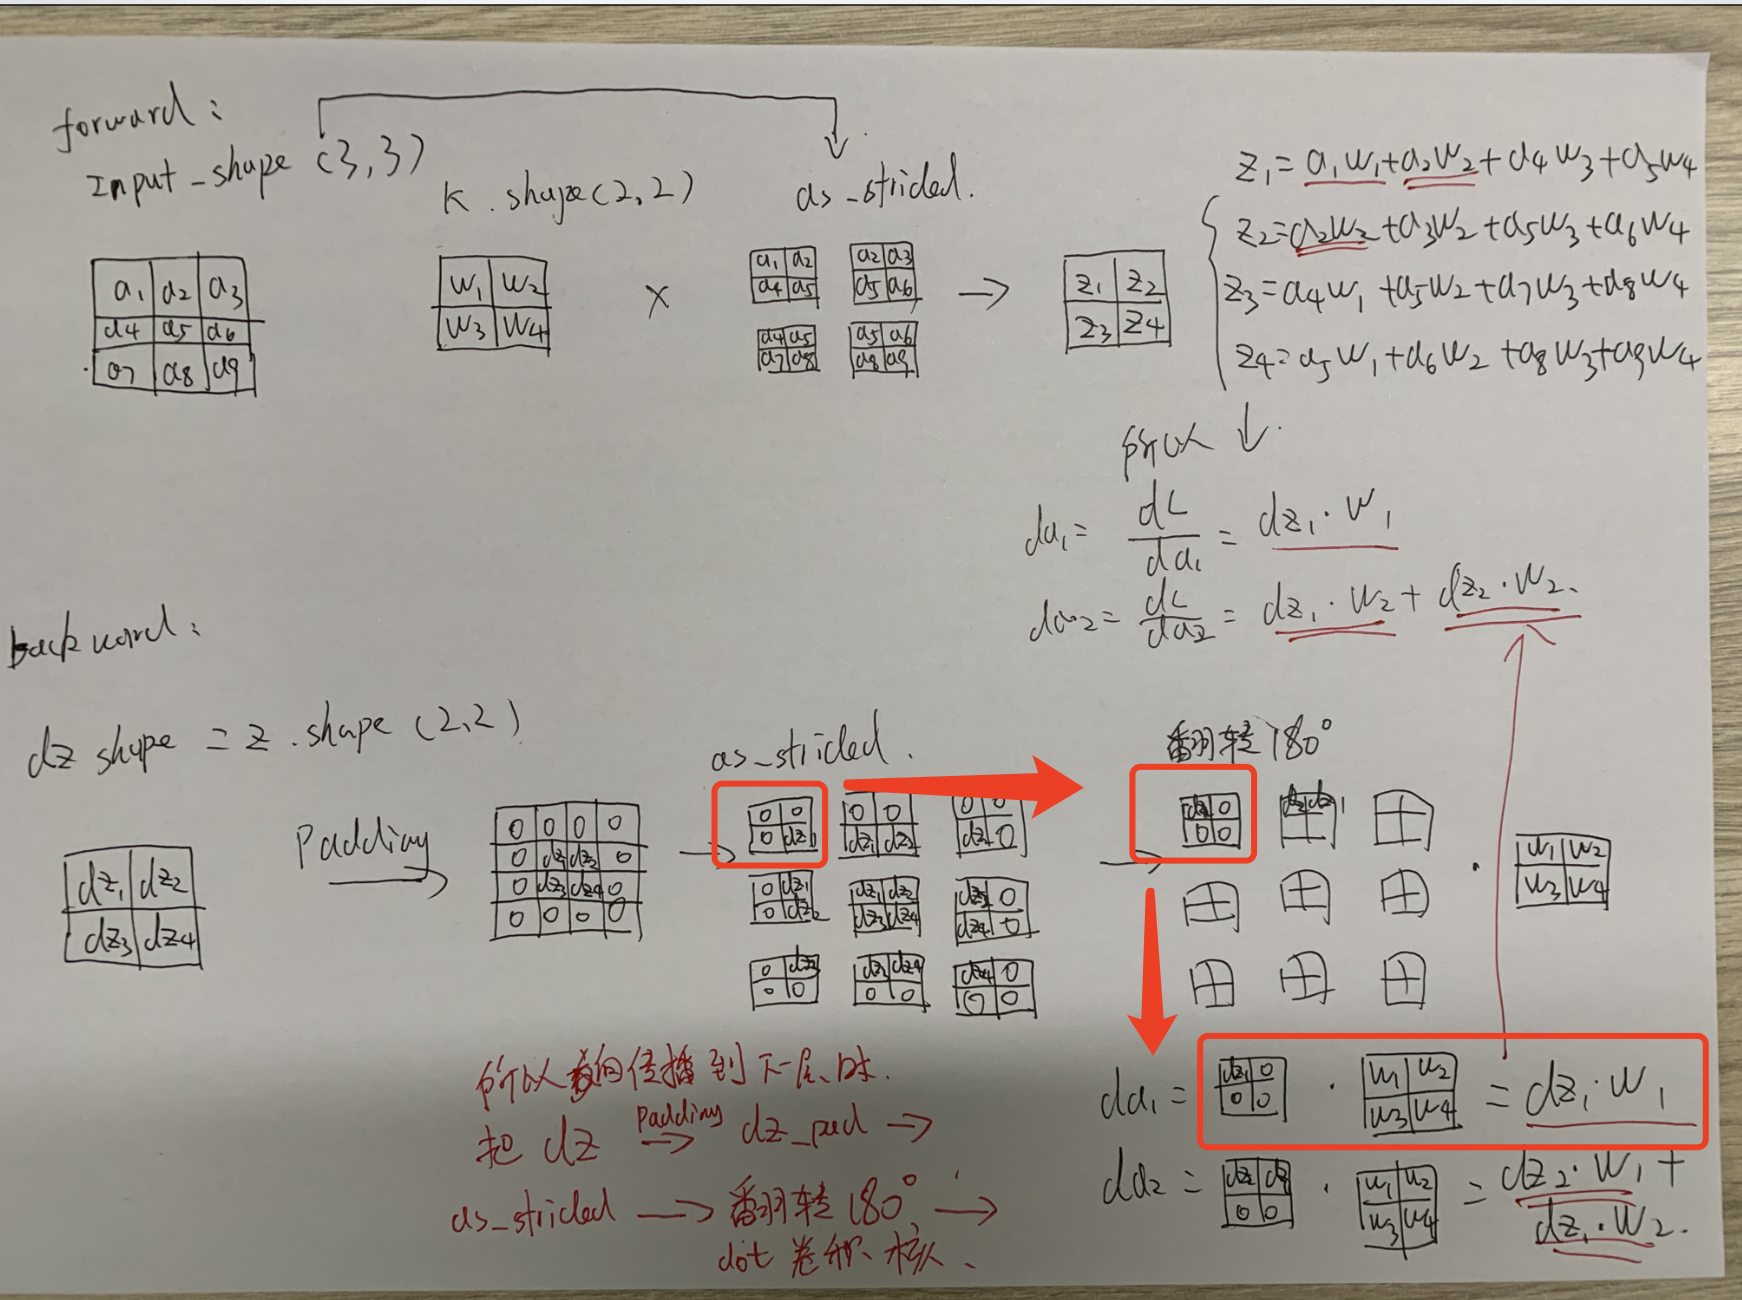 forward:
Input_shape (3,3)
K.shape(2,2)
as_strided.
a1 a2 a3
a4 a5 a6
a7 a8 a9
w1 w2
w3 w4
×
a1 a2
a4 a5
a2 a3
a5 a6
a4 a5
a7 a8
a5 a6
a8 a9
→
z1 z2
z3 z4
z1=a1w1+a2w2+a4w3+a5w4
z2=a2w2+a3w2+a5w3+a6w4
z3=a4w1+a5w2+a7w3+a8w4
z4=a5w1+a6w2+a8w3+a9w4
所以 ↓
da1= dL/da1 = dz1·w1
da2= dL/da2 = dz1·w2+dz2·w2.
backward:
dz shape = z.shape (2,2)
dz1 dz2
dz3 dz4
Padding
0 0 0 0
0 dz1 dz2 0
0 dz3 dz4 0
0 0 0 0
as_strided.
0 0
0 dz1
0 0
dz1 dz2
0 0
dz2 0
0 dz1
0
dz1 dz2
dz3 dz4
0
dz4 0
0
0 0
dz4
0 0
dz4 0
0 0
翻转180°
dz1 0
0 0
·
w1 w2
w3 w4
da1=
dz1 0
0 0
·
w1 w2
w3 w4
= dz1·w1
da2=
dz2 dz1
0 0
·
w1 w2
w3 w4
= dz2·w1+
dz1·w2.
所以反向传播到下一层时.
把 dz Padding→ dz_pad →
as_strided → 翻转180° →
dot 卷积核.